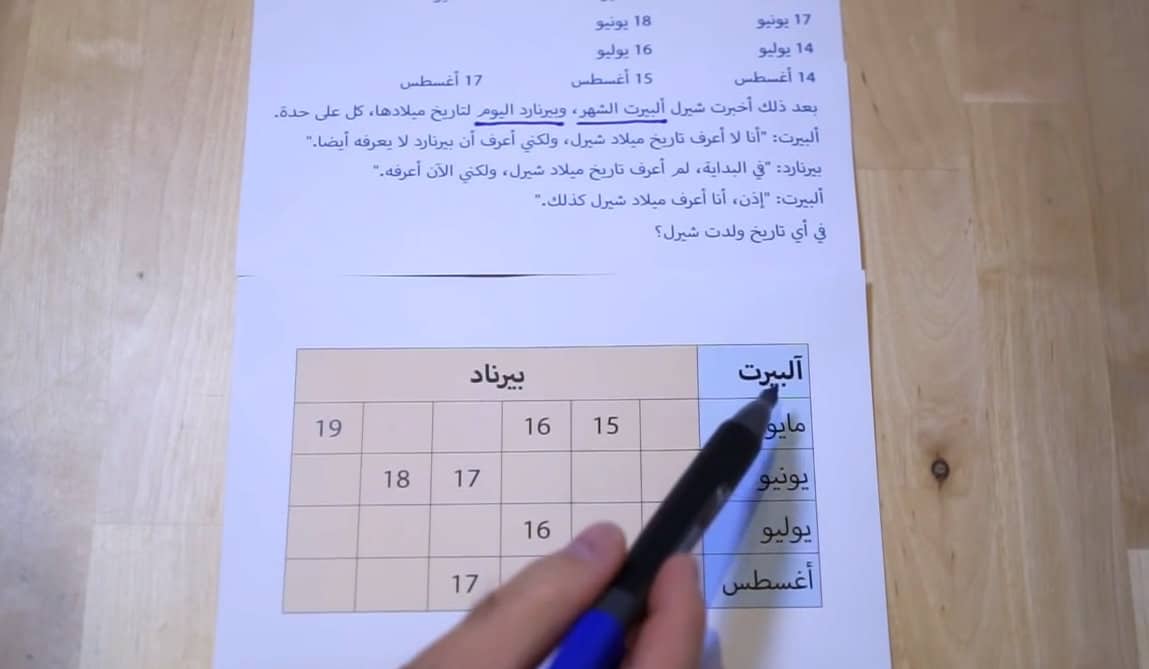 17 يونيو 18 يونيو
14 يوليو 16 يوليو
14 أغسطس 15 أغسطس 17 أغسطس
بعد ذلك أخبرت شيرل ألبيرت الشهر، وبيرنارد اليوم لتاريخ ميلادها، كل على حدة.
ألبيرت: "أنا لا أعرف تاريخ ميلاد شيرل، ولكني أعرف أن بيرنارد لا يعرفه أيضا."
بيرنارد: "في البداية، لم أعرف تاريخ ميلاد شيرل، ولكني الآن أعرفه."
ألبيرت: "إذن، أنا أعرف ميلاد شيرل كذلك."
في أي تاريخ ولدت شيرل؟
آلبيرت بيرناد
مايو 15 16 19
يونيو 17 18
يوليو 16
أغسطس 17